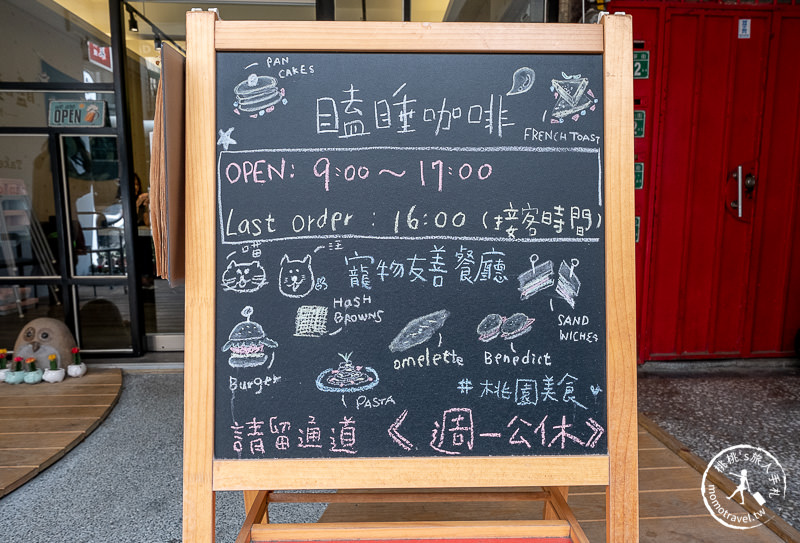 PAN
CAKES
瞌睡咖啡
FRENCH TOAST
OPEN: 9:00～17:00
Last order : 16:00 (接客時間)
喵
汪
寵物友善餐廳
HASH
BROWNS
SAND
WICHES
Burger
PASTA
omelette
Benedict
#桃園美食
請留通道
《週一公休》
OPEN
桃桃's旅人手札
momotravel.tw